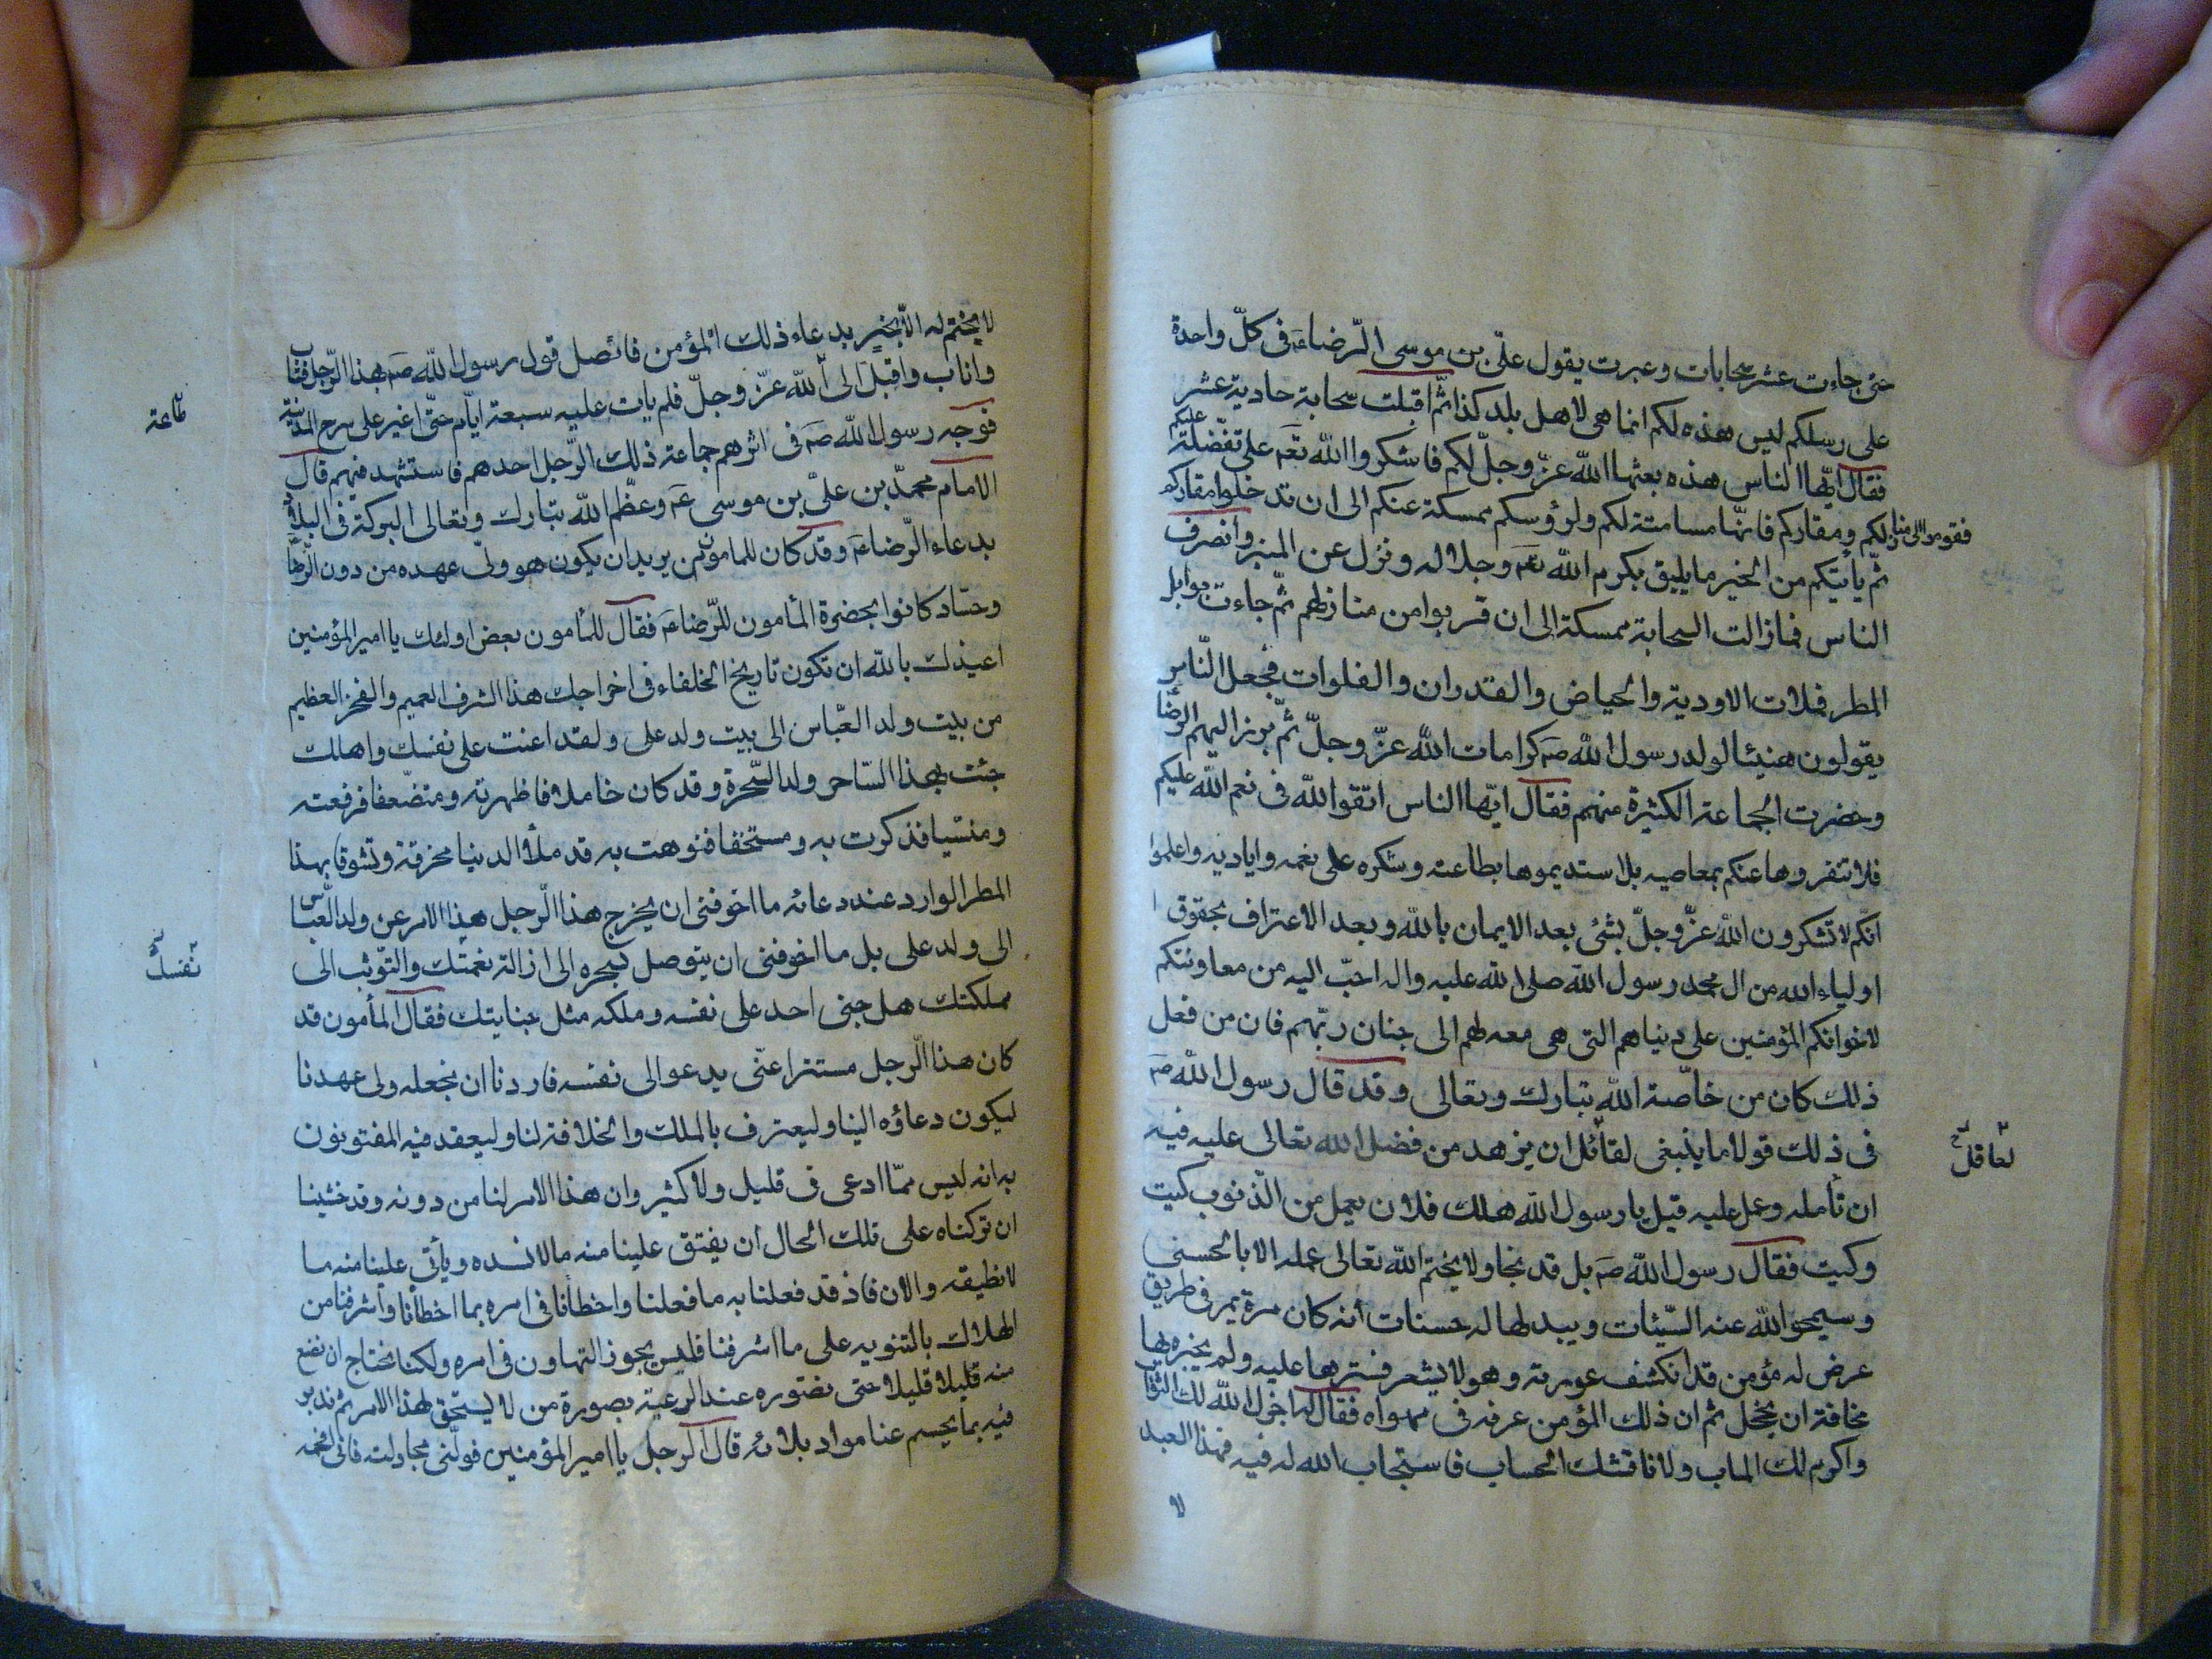 حتى جاءت عشر سحابات وعبرت يقول علي بن موسى الرضا ع في كل واحدة
على رسلكم ليس هذه لكم انما هي لاهل بلد كذا ثم اقبلت سحابة حادية عشر
فقال ايها الناس هذه بعثها الله عز وجل لكم فاشكروا الله تع على تفضله عليكم
فقوموا الى منازلكم ومقاركم فانها مسامتة لكم ولرؤوسكم ممسكة عنكم الى ان تدخلوا مقاركم
ثم ياتيكم من الخير ما يليق بكرم الله تع وجلاله ونزل عن المنبر وانصرف
الناس فمازالت السحابة ممسكة الى ان قربوا من منازلهم ثم جاءت بوابل
المطر فملات الاودية والحياض والغدران والفلوات فجعل الناس
يقولون هنيئا لولد رسول الله ص كرامات الله عز وجل ثم برز اليهم الرضا
وحضرت الجماعة الكثيرة منهم فقال ايها الناس اتقوا الله في نعم الله عليكم
فلا تنفروها عنكم بمعاصيه بل استديموها بطاعته وشكره على نعمه واياديه واعلموا
انكم لا تشكرون الله عز وجل بشئ بعد الايمان بالله وبعد الاعتراف بحقوق
اولياء الله من ال محمد رسول الله صلى الله عليه واله احب اليه من معاونتكم
لاخوانكم المؤمنين على دنياهم التي هي معبر لهم الى جنان ربهم فان من فعل
ذلك كان من خاصة الله تبارك وتعالى وقد قال رسول الله ص
في ذلك قولا ما ينبغي لقائل ان يزهد من فضل الله تعالى عليه فيه
لعاقل
ان تأمله وعمل عليه قيل يا رسول الله هلك فلان يعمل من الذنوب كيت
وكيت فقال رسول الله ص بل قد نجا ولا يختم الله تعالى عمله الا بالحسنى
وسيمحو الله عنه السيئات ويبدلها له حسنات انه كان مرة يمر في طريق
عرض له مؤمن قد انكشف عورته وهو لا يشعر فسترها عليه ولم يخبره بها
مخافة ان يخجل ثم ان ذلك المؤمن عرفه في مهواه فقال له اجزل الله لك الثواب
واكرم لك الماب ولا ناقشك الحساب فاستجاب الله له فيه فهذا العبد
لا
لا يختم له الا بخير بدعاء ذلك المؤمن فاتصل قول رسول الله ص بهذا الرجل فتاب
واناب واقبل الى الله عز وجل فلم يات عليه سبعة ايام حتى اغير على سرح المدينة
طاعة
فوجه رسول الله ص في اثرهم جماعة ذلك الرجل احدهم فاستشهد فيهم قال
الامام محمد بن علي بن موسى ع وعظم الله تبارك وتعالى البركة في البلاد
بدعاء الرضا ع وقد كان للمامون من يريد ان يكون هو ولي عهده من دون الرضا
وحساد كانوا بحضرة المأمون للرضا ع فقال للمأمون بعض اولئك يا امير المؤمنين
اعيذك بالله ان تكون تاريخ الخلفاء في اخراجك هذا الشرف العميم والفخر العظيم
من بيت ولد العباس الى بيت ولد على ولقد اعنت على نفسك واهلك
جئت بهذا الساحر ولد السحرة وقد كان خاملا فاظهرته ومتضعفا فرفعته
ومنسيا فذكرت به ومستخفا فنوهت به قد ملأ الدنيا مخرقة وتشوقا بهذا
المطر الوارد عند دعائه ما اخوفني ان يخرج هذا الرجل هذا الامر عن ولد العباس
الى ولد على بل ما اخوفني ان يتوصل بسحره الى ازالة نعمتك والتوثب الى
نفسك
مملكتك هل جنى احد على نفسه وملكه مثل جنايتك فقال المأمون قد
كان هذا الرجل مستترا عني يدعو الى نفسه فاردنا ان نجعله ولي عهدنا
ليكون دعاؤه الينا وليعترف بالملك والخلافة لنا وليعقد فيه المفتونون
به انه ليس مما ادعى في قليل ولا كثير وان هذا الامر لنا من دونه وقد خشينا
ان تركناه على تلك الحال ان يفتق علينا منه ما لا نسده ويأتي علينا منه ما
لا نطيقه والان فاذ قد فعلنا به ما فعلنا واخطأنا في امره بما اخطأنا واشرفنا من
الهلاك بالتنويه على ما اشرفنا فليس يجوز التهاون في امره ولكنا نحتاج ان نضع
منه قليلا قليلا حتى نصوره عند الرعية بصورة من لا يستحق لهذا الامر ثم ندبر
فيه بما يحسم عنا مواد بلائه قال الرجل يا امير المؤمنين فولني مجادلته فاني افحمه